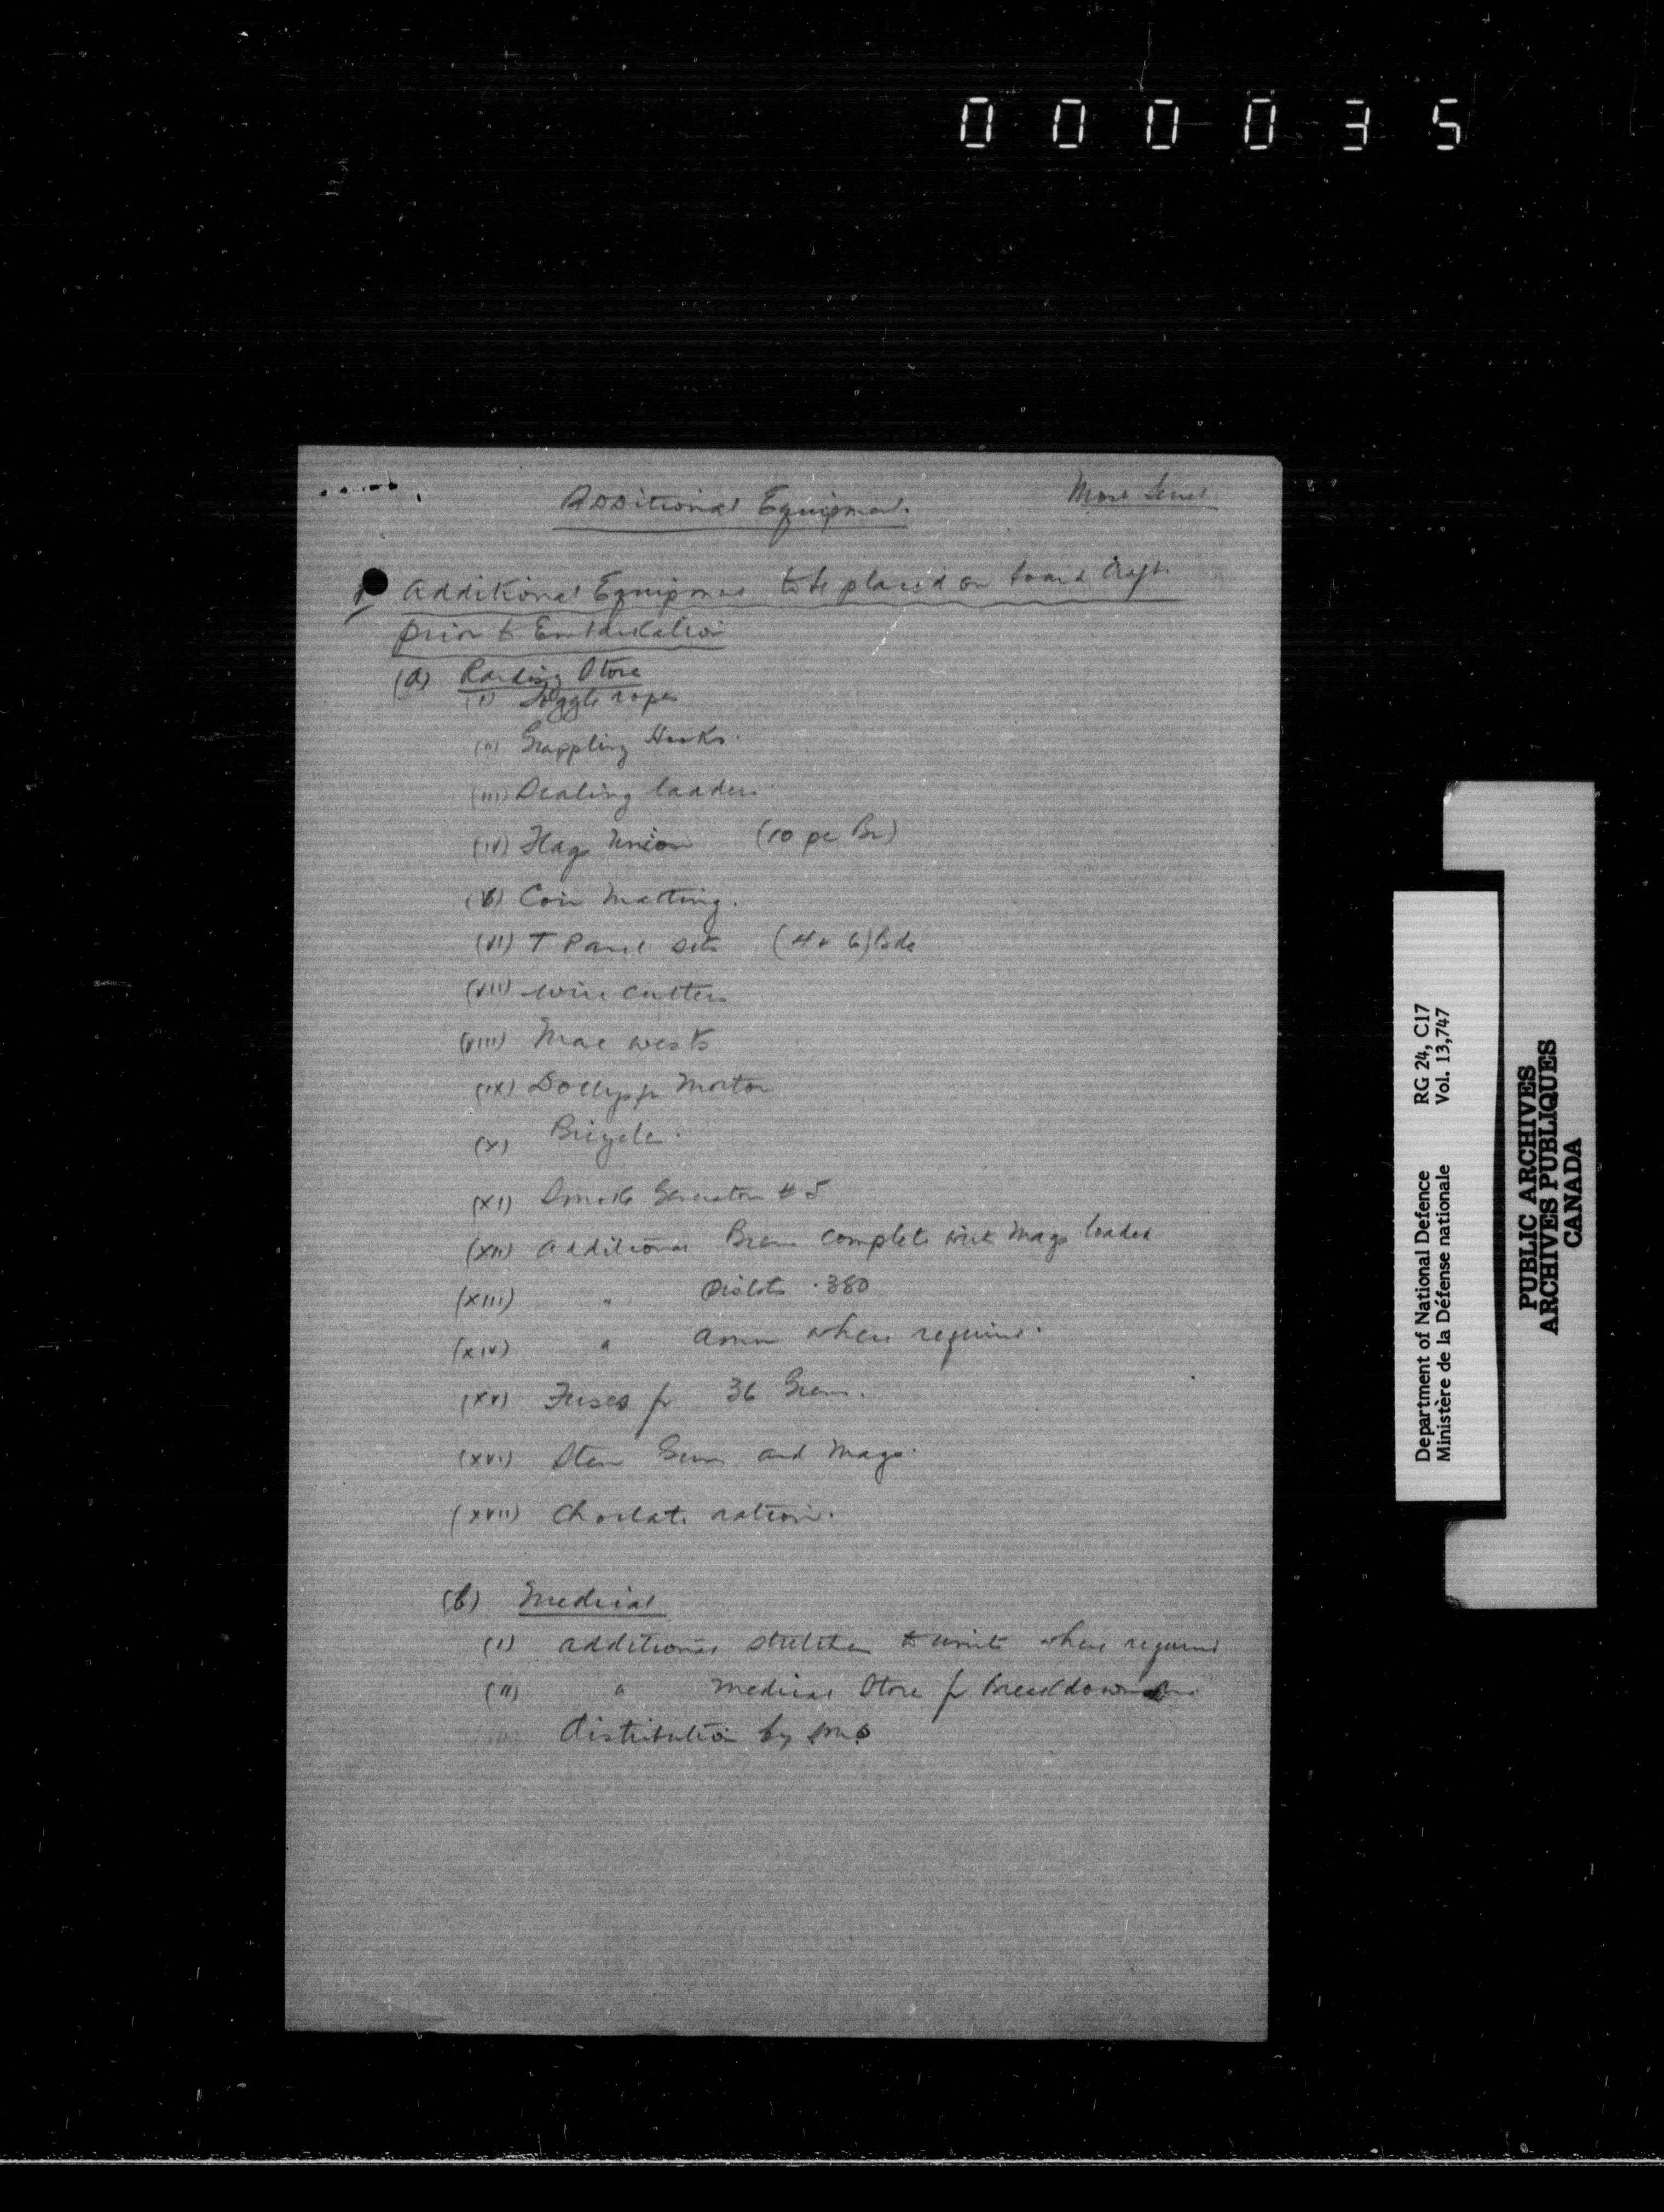 000035
Additional Equipment. Most Secret
1 Additional Equipment to be placed on board Craft
prior to Embarkation
(a) Raiding Store
(i) Toggle ropes
(ii) Grappling Hooks.
(iii) Scaling ladders.
(iv) Flags Union (10 per Bn)
(v) Coir Matting.
(vi) T Panel sets (4 & 6) Bde
(vii) wire cutters
(viii) Mae wests
(ix) Dollys for Mortar
(x) Bicycles.
(xi) Smoke Generators # 5
(xii) additional Brens complete with mags loaded
(xiii) " Pistols .380
(xiv) " Amn where required.
(xv) Fuses for 36 Gren.
(xvi) Sten Guns and Mags.
(xvii) Choclate ration.
(b) Medical
(i) additional stretchers to units where required
(ii) " medical Store for Breakdown
distribution by
Department of National Defence RG 24, C17
Ministère de la Défense nationale Vol. 13,747
PUBLIC ARCHIVES
ARCHIVES PUBLIQUES
CANADA